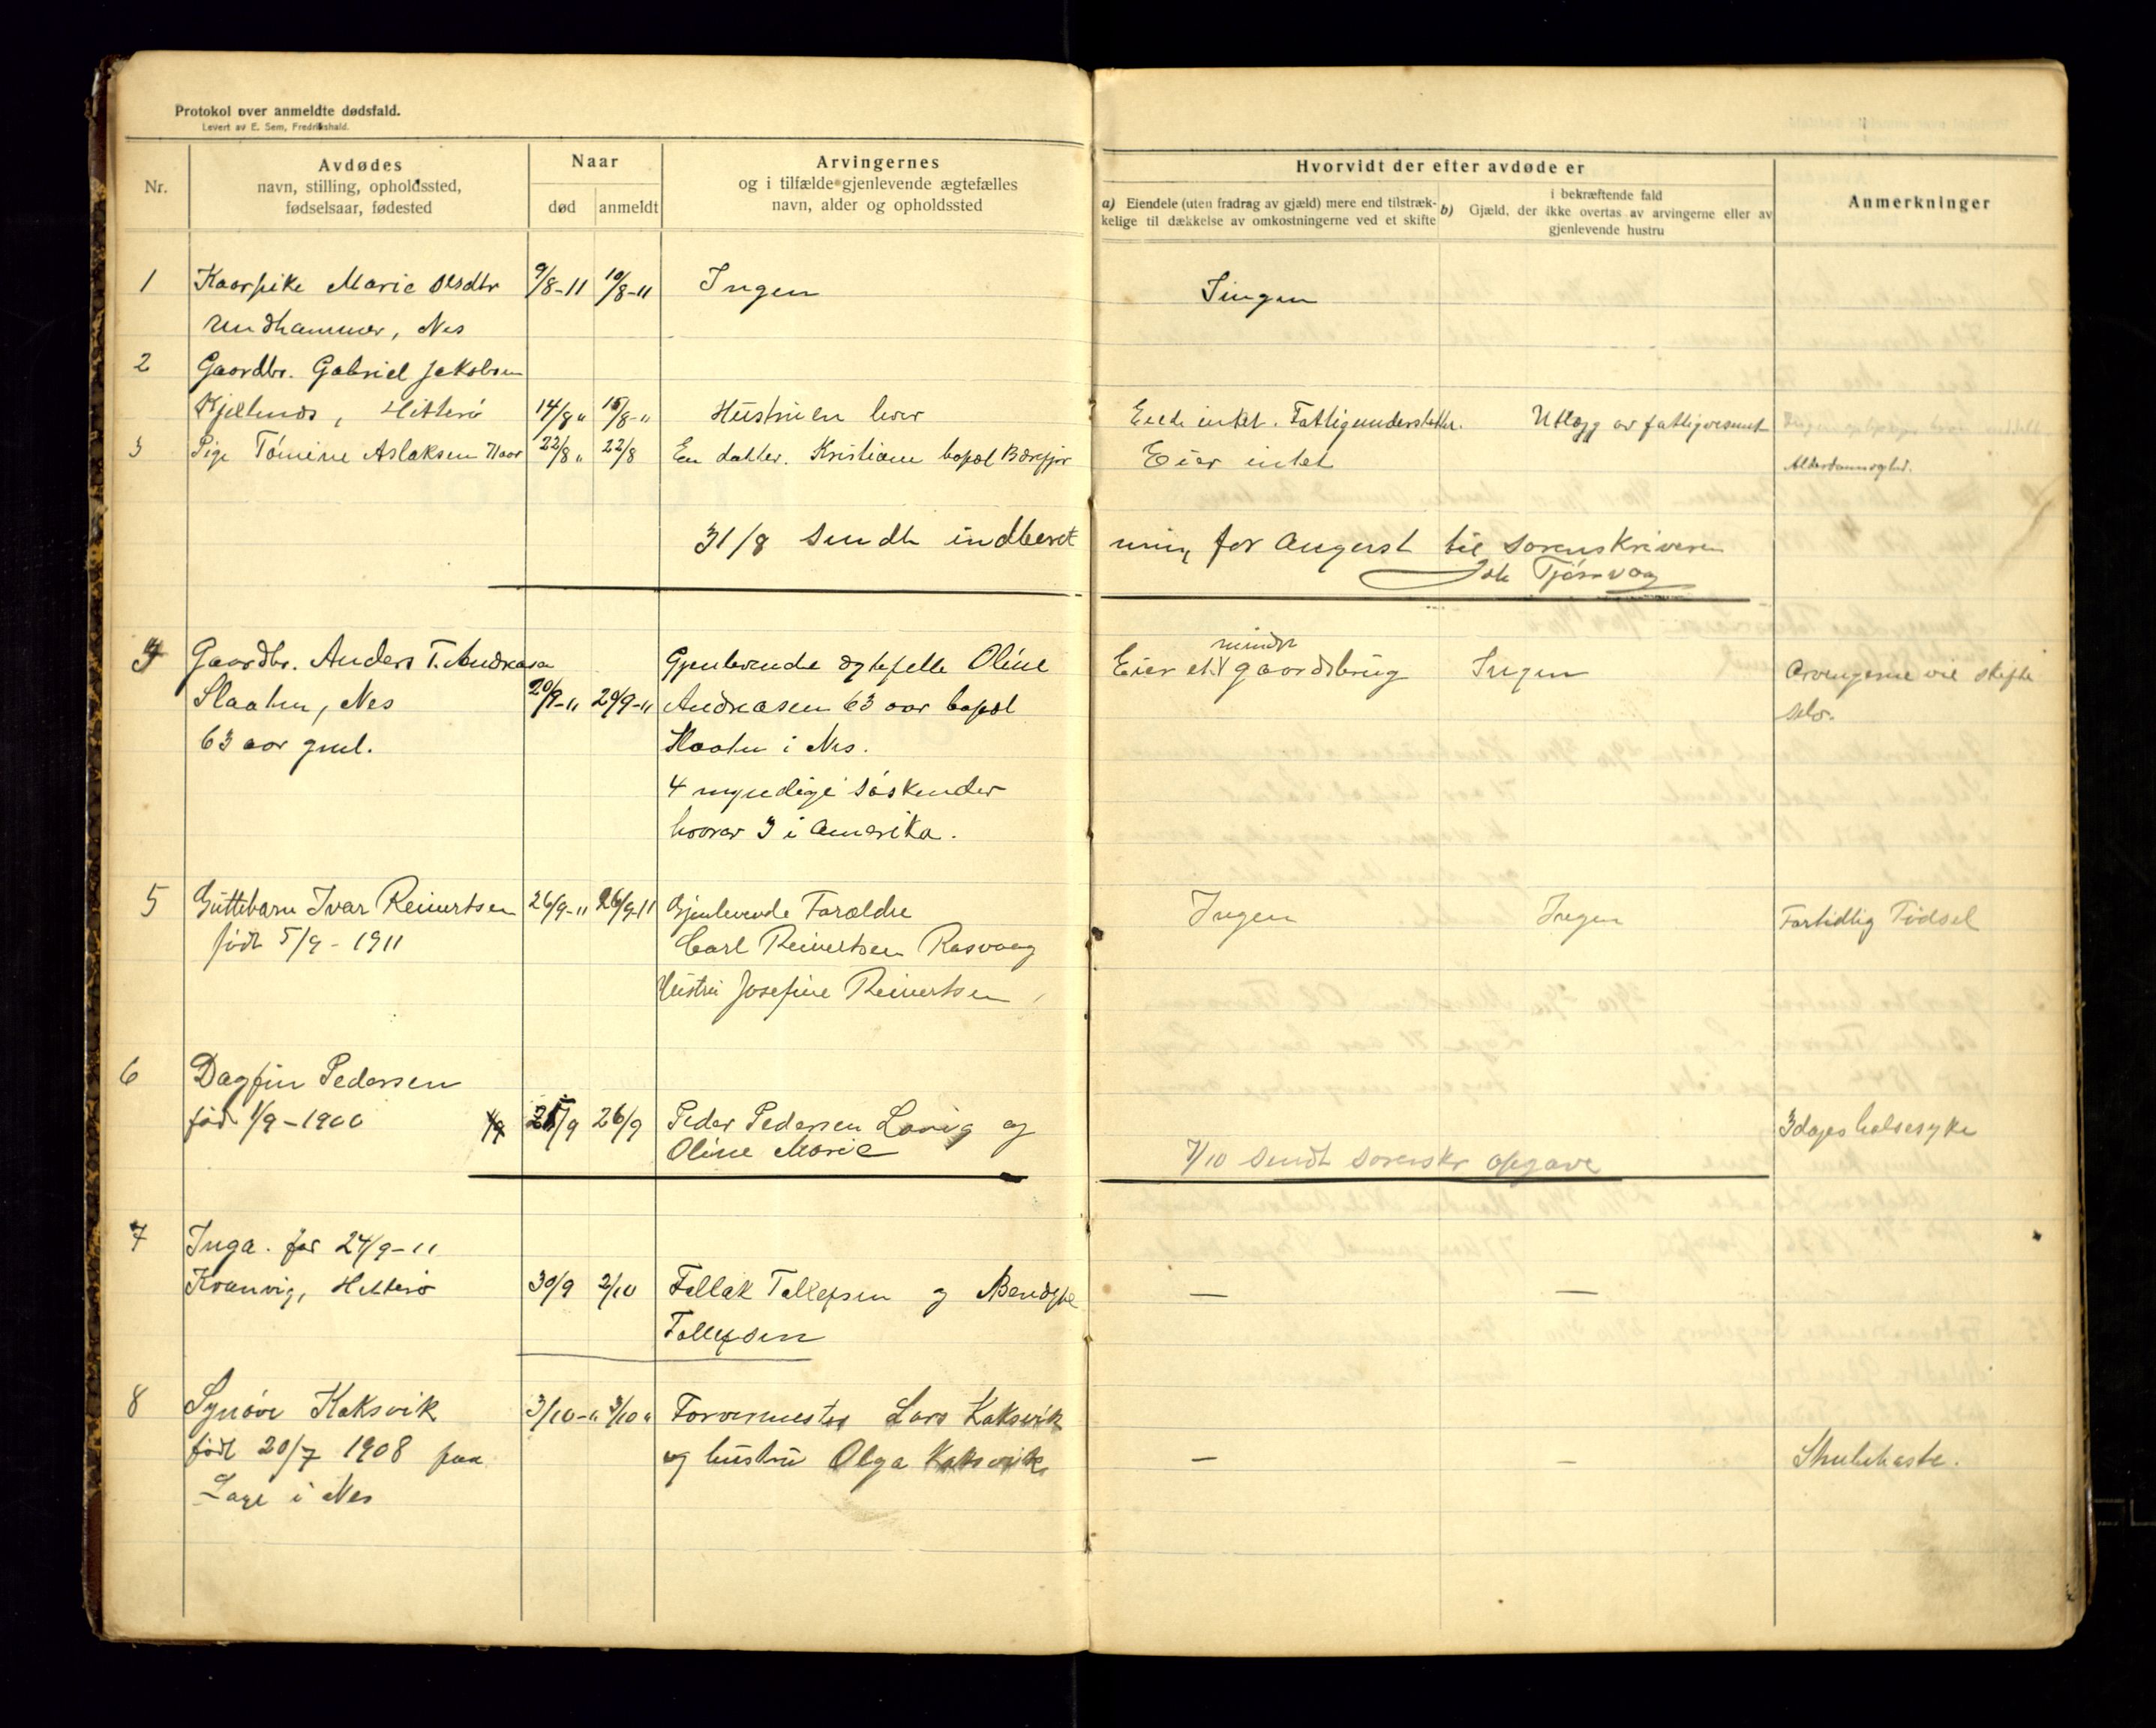 Protokol over anmeldte dødsfald.
Levert av E. Sem, Fredrikshald.
Nr.
Avdødes
navn, stilling, opholdssted,
fødselsaar, fødested
Naar
død
anmeldt
Arvingernes
og i tilfælde gjenlevende ægtefælles
navn, alder og opholdssted
Hvorvidt der efter avdøde er
a) Eiendele (uten fradrag av gjæld) mere end tilstræk-
kelige til dækkelse av omkostningerne ved et skifte
i bekræftende fald
b) Gjæld, der ikke overtas av arvingerne eller av
gjenlevende hustru
Anmerkninger
1 Kaarpike Marie Olsdtr 9/8-11 10/8-11 Ingen Ingen
Nes
2 Gaardbr. Gabriel Jakobsen
Hitterø 14/8 " 15/8-" Hustruen lever Eiede intet. Utlægg av fattigvesenet
3 Pige Tomine Aslaksen 71 aar 22/8 " 22/8 En datter. Kristiane bopæl Eier intet
31/8 sendt indberet
ning for August til Sorenskriveren
Tjørsvaag
4 Gaardbr. Anders T. Andreasen Gjenlevende ægtefelle Oline Eier et mindre gaardsbrug Ingen Arvingerne vil skifte
Slaaten, Nes 20/9-11 29/9-11 Andreasen 63 aar bopæl selv.
63 aar gml. Slaaten i Nes.
4 myndige søskender
hvorav 3 i Amerika.
5 Guttebarn Ivar Reinertsen 26/9-11 26/9-11 Gjenlevende Forældre Ingen Ingen Fortidlig Fødsel
født 5/9-1911 Carl Reinertsen Rasvaag
Hustru Josefine Reinertsen
6 Dagfin Pedersen
født 1/9-1900 25/9 26/9 Peder Pedersen Lavig og 3dages halsesyke
Oline Marie
7/10 sendt sorenskr opgave
7 Inga. før 24/9-11
Kvanvig, Hitterø 30/9 2/10 Tollak Tollefsen og — —
Tollefsen
8 Synøve Kaksvik 3/10-" 3/10 " Farvermester Lars Kaksvik
født 20/7 1908 paa og hustru Olga Kaksvik — —
Løge i Nes